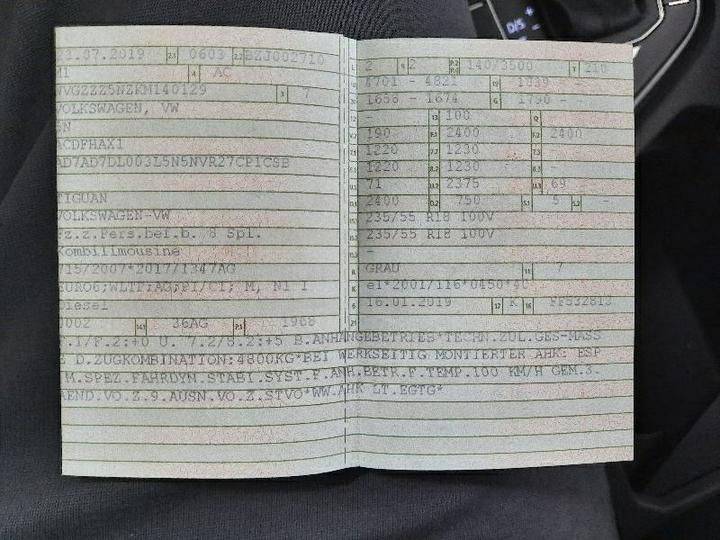 23.07.2019 2.1 0603 2.2 BZJ002710
M1 4 AC
WVGZZZ5NZKM140129 3 7
VOLKSWAGEN, VW
5N
ACDFHAX1
AD7AD7DL003L5N5NVR27CP1CSB
TIGUAN
VOLKSWAGEN-VW
Fz.z.Pers.bef.b. 8 Spl.
Kombilimousine
715/2007*2017/1347AG
EURO6;WLTP;AG;PI/CI; M, N1 I
Diesel
0002 14.1 36AG P.1 1968
L 2 9 2 P.2 P.4 140/3500 T 210
18 4701 - 4821 19 1839 -
20 1658 - 1674 G 1790 - -
12 - 13 100 Q
V.7 190 F.1 2400 F.2 2400
7.1 1220 7.2 1230 7.3
8.1 1220 8.2 1230 8.3 -
U.1 71 U.2 2375 U.3 69
O.1 2400 O.2 750 S.1 5 S.2 -
15.1 235/55 R18 100V
15.2 235/55 R18 100V
15.3 -
R GRAU 11 7
K e1*2001/116*0450*40
6 16.01.2019 17 K 16 FF532813
21
7.1/F.2:+0 U. 7.2/8.2:+5 B.ANHÄNGEBETRIEB*TECHN.ZUL.GES-MASS
E D.ZUGKOMBINATION:4800KG*BEI WERKSEITIG MONTIERTER AHK: ESP
M.SPEZ.FAHRDYN.STABI.SYST.F.ANH.BETR.F.TEMP.100 KM/H GEM.3.
AEND.VO.Z.9.AUSN.VO.Z.STVO*WW.AHK LT.EGTG*